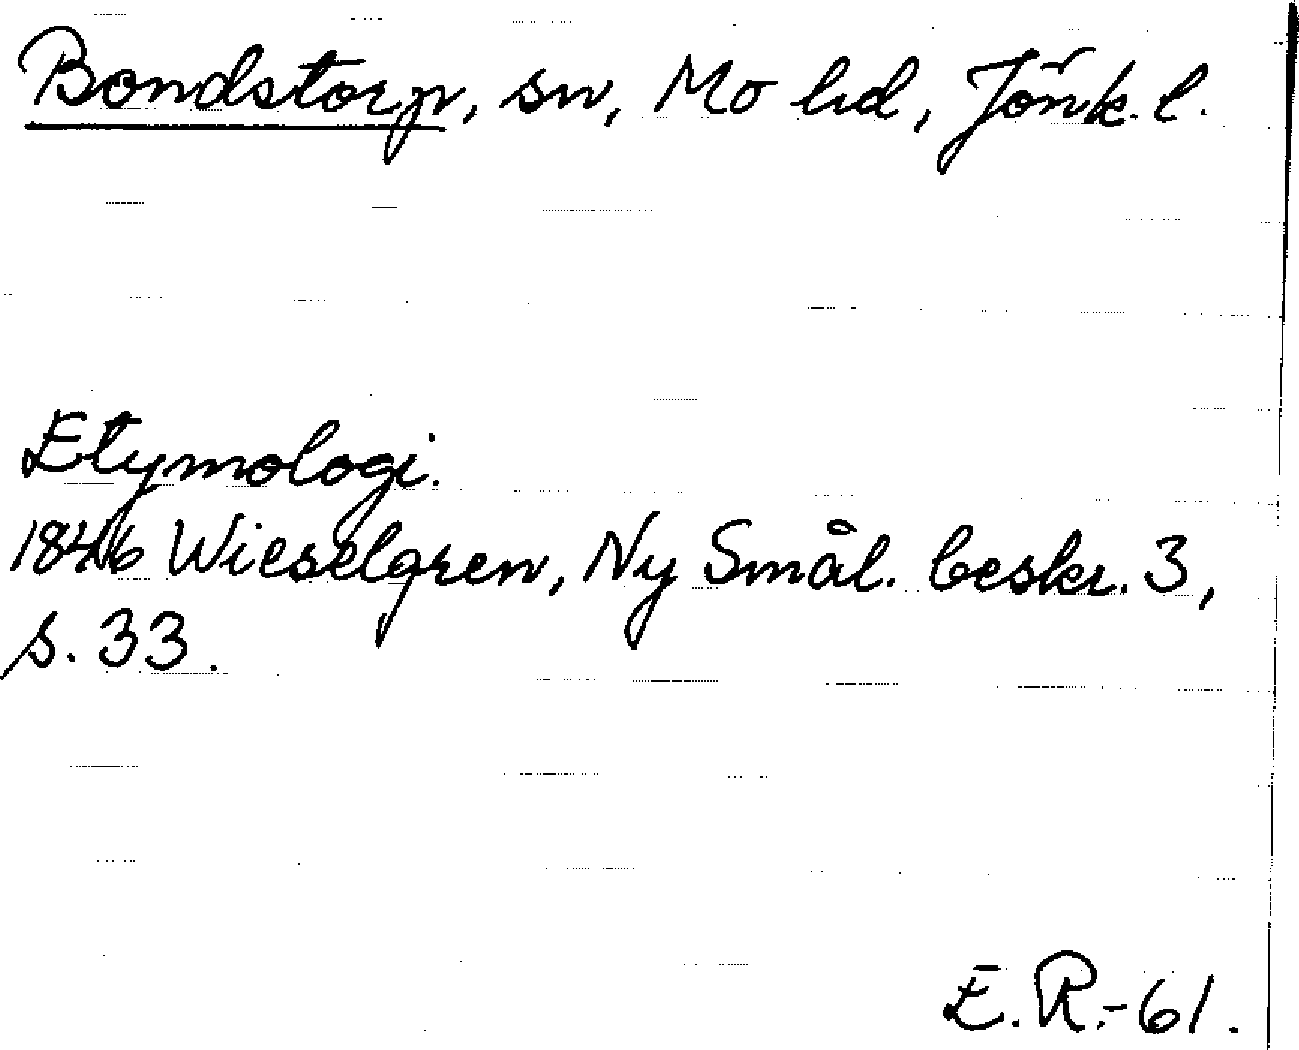 Bondstorp, sn, Mo hd, Jönk. l.
Etymologi.
1846 Wieselgren, Ny Smål. beskr. 3,
s. 33.
E.R.-61.